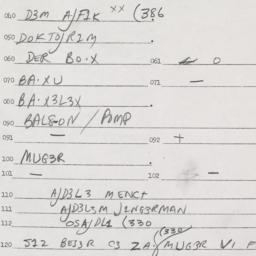 040 D3M A/FIK xx (386
050 DOKTO/RIM .
060 DER BO·X 061 0
070 BA·XU 071 –
080 BA·X3L3X .
090 BALS-ON / POMP
091 – 092 +
100 MUG3R .
101 – 102 –
110 A/D3L3 MENC+
111 A/D3L3M J1NG3RMAN
112 OSA/DL1 (330
120 J12 BES3R 03 ZA/MUG3R VI F
(330